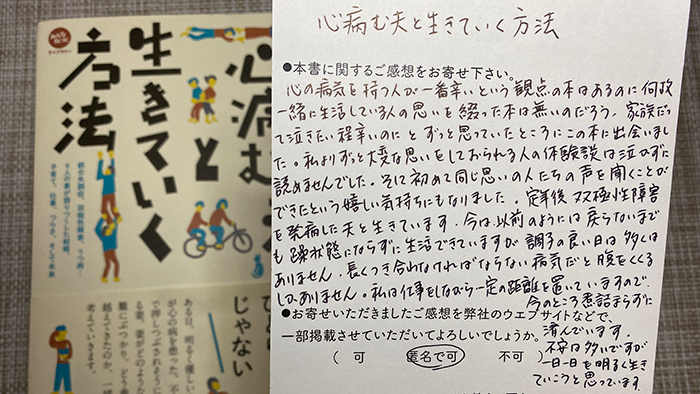 みんなねっと
ライブラリー
心病む夫と
生きていく
方法
統合失調症、双極性障害、うつ病…
9人の妻が語りつくした結婚、
子育て、仕事、つらさ、そして未来
じゃない
ある日、明るく優しい
が心の病を患った。不
で押しつぶされそうに
る妻。妻がどのような
難にぶつかり、どう
越えてきたのか、一
考えていきます。
心病む夫と生きていく方法
●本書に関するご感想をお寄せ下さい。
心の病気を持つ人が一番辛いという観点の本はあるのに何故
一緒に生活している人の思いを綴った本は無いのだろう、家族だっ
て泣きたい程辛いのに とずっと思っていたところにこの本に出会いまし
た。私よりずっと大変な思いをしておられる人の体験談は泣かずに
読めませんでした。そして初めて同じ思いの人たちの声を聞くことが
できたという嬉しい気持ちにもなりました。定年後 双極性障害
を発病した夫と生きています。今は以前のようには戻らないまで
も躁状態にならずに生活できていますが 調子の良い日は多くは
ありません。長くつき合わなければならない病気だと腹をくくる
しかありません。私は仕事をしながら一定の距離を置いていますので、
今のところ煮詰まらずに
●お寄せいただきましたご感想を弊社のウェブサイトなどで、
済んでいます。
一部掲載させていただいてよろしいでしょうか。
不安は多いですが
（ 可 匿名で可 不可 ）
一日一日を明るく生き
ていこうと思っています。